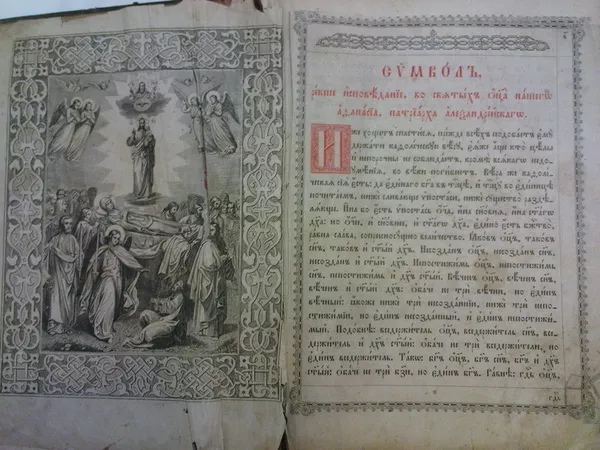 СѶ́МВОЛЪ,
сі́ѐ и҆сповѣ́данїе, во свѧты́хъ ѻ҆ц҃а̀ на́шегѡ
А҆ѳана́сїа, патрїа́рха а҆леѯандрі́йскагѡ.
И҆́же хо́щетъ спасти́сѧ, пре́жде всѣ́хъ подоба́етъ є҆мꙋ̀
держа́ти каѳоли́ческꙋю вѣ́рꙋ, є҆ѧ́же а҆́ще кто̀ цѣ́лы
и҆ непоро́чны не соблюде́тъ, кромѣ̀ всѧ́кагѡ недо-
ꙋмѣ́нїѧ, во вѣ́ки поги́бнетъ. Вѣ́ра же каѳоли́-
ческаѧ сїѧ̀ є҆́сть: да є҆ди́наго бг҃а въ трⷪ҇цѣ, и҆ трⷪ҇цꙋ во є҆ди́ницѣ
почита́емъ, нижѐ слива́юще ѵ҆поста̑си, нижѐ сꙋщество̀ раздѣ-
лѧ́юще. И҆́на бо є҆́сть ѵ҆поста́сь ѻ҆́ч҃а, и҆́на сн҃овнѧ, и҆́на ст҃а́гѡ
дх҃а: но ѻ҆́ч҃ее, и҆ сн҃овнее, и҆ ст҃а́гѡ дх҃а є҆ди́но є҆́сть бж҃ество̀,
равна̀ сла́ва, соприсносꙋ́щно вели́чество. Ꙗ҆ко́въ ѻ҆ц҃ъ, тако́въ
сн҃ъ, тако́въ и҆ ст҃ы́й дх҃ъ. Несозда́нъ ѻ҆ц҃ъ, несозда́нъ сн҃ъ,
несозда́нъ и҆ ст҃ы́й дх҃ъ. Непостижи́мь ѻ҆ц҃ъ, непостижи́мь
сн҃ъ, непостижи́мь и҆ ст҃ы́й дх҃ъ. Вѣ́ченъ ѻ҆ц҃ъ, вѣ́ченъ
сн҃ъ, вѣ́ченъ и҆ ст҃ы́й дх҃ъ: ѻ҆ба́че не трѝ вѣ́чни, но є҆ди́нъ
вѣ́чный: ꙗ҆́коже нижѐ трѝ несозда́ннїи, нижѐ трѝ непости-
жи́мїи, но є҆ди́нъ несозда́нный, и҆ є҆ди́нъ непостижи́-
мый. Подо́бнѣ: вседержи́тель ѻ҆ц҃ъ, вседержи́тель сн҃ъ, все-
держи́тель и҆ ст҃ы́й дх҃ъ: ѻ҆ба́че не трѝ вседержи́тели, но
є҆ди́нъ вседержи́тель. Та́кѡ: бг҃ъ ѻ҆ц҃ъ, бг҃ъ сн҃ъ, бг҃ъ и҆ дх҃ъ
ст҃ы́й: ѻ҆ба́че не трѝ бз҃и, но є҆ди́нъ бг҃ъ. Та́кожде: гдⷭ҇ь ѻ҆ц҃ъ,
гдⷭ҇ь